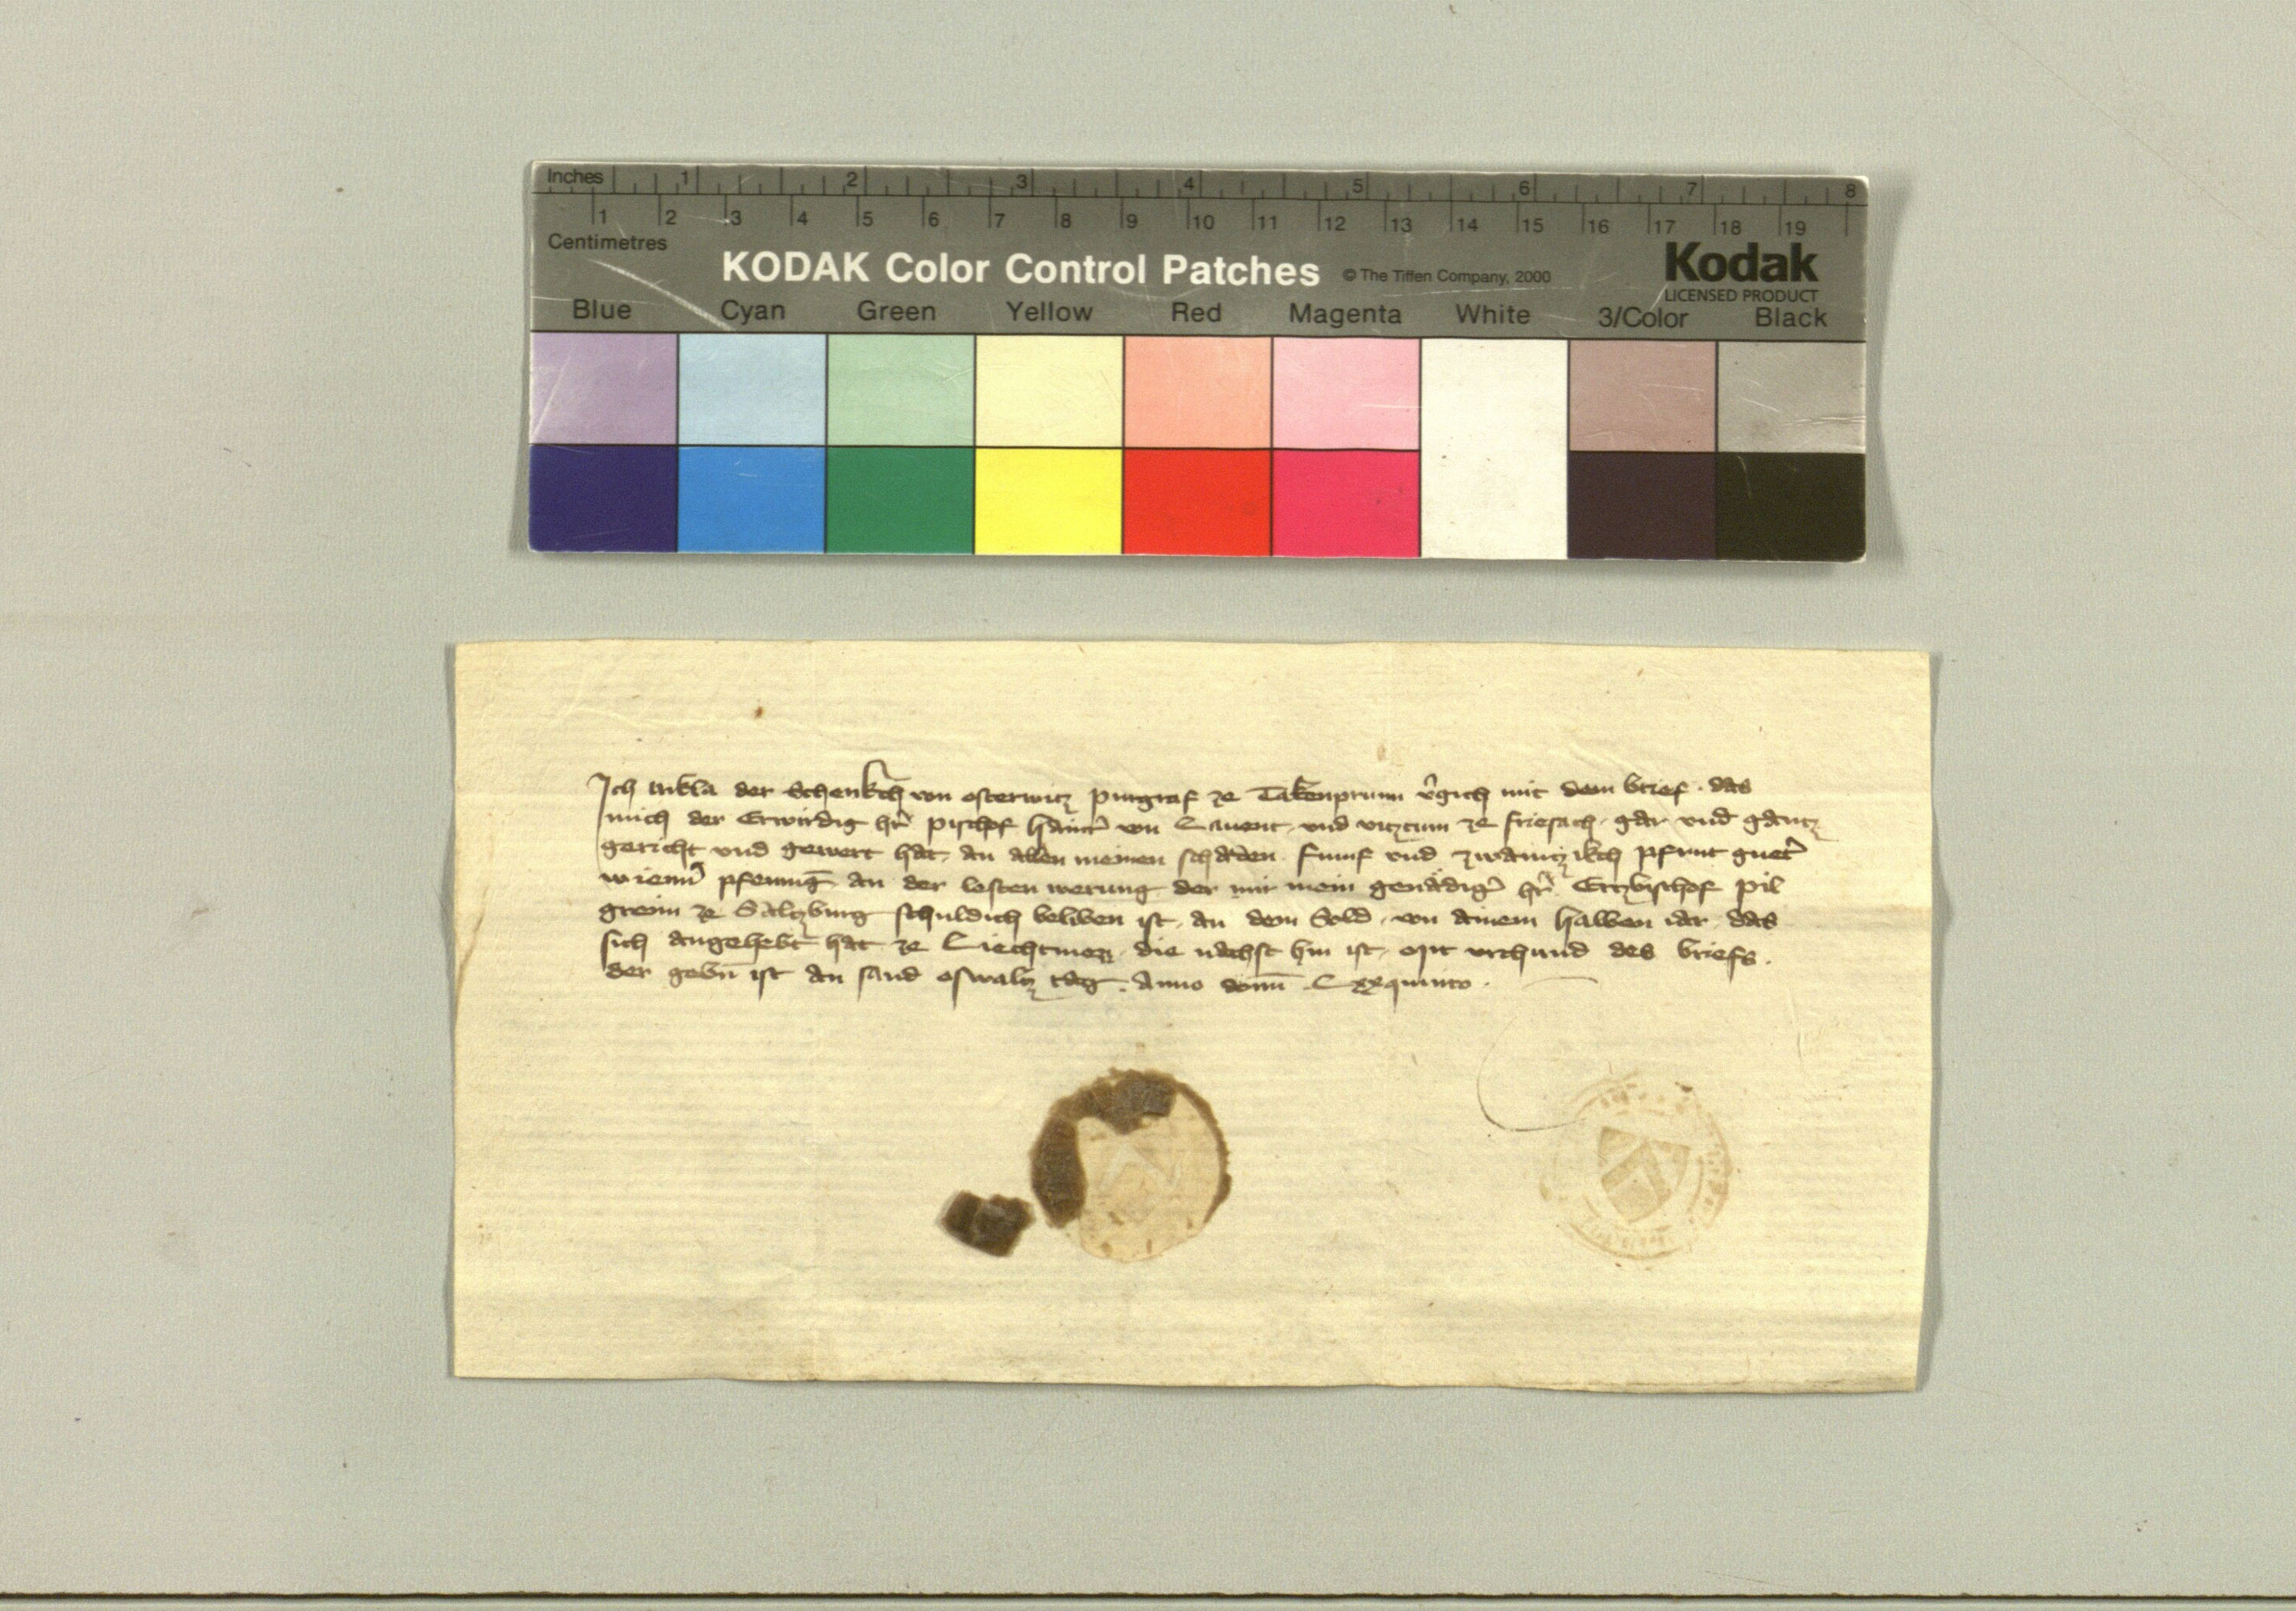 Inches 1 2 3 4 5 6 7 8
1 2 3 4 5 6 7 8 9 10 11 12 13 14 15 16 17 18 19
Centimetres
KODAK Color Control Patches © The Tiffen Company, 2000 Kodak
LICENSED PRODUCT
Blue Cyan Green Yellow Red Magenta White 3/Color Black
Ich Nikla der Schenkch von osterwitz purgraf ze Takenprunn v̂gich mit dem brief · das
mich der Erwirdig hr̂ pischof von Lauent · und vitztum ze friesach · gar und gantz
gericht und gewert hat · an allen meinen schaden · fumf und zwaintzikch pfunt guet̂
wienn̂ pfenniḡ an der lesten werung der mir mein genädiĝ hr̂ Ertzbischof pil
greim ze Saltzburg schuldich beliben ist · an dem Sold · von ainem halben iar · das
sich angehebt hat ze Liechtmezz · die nachst hin ist · mit vrchund des briefs ·
der gebn̄ ist an sand oswaltz tag · Anno domī Lxxquinto ·